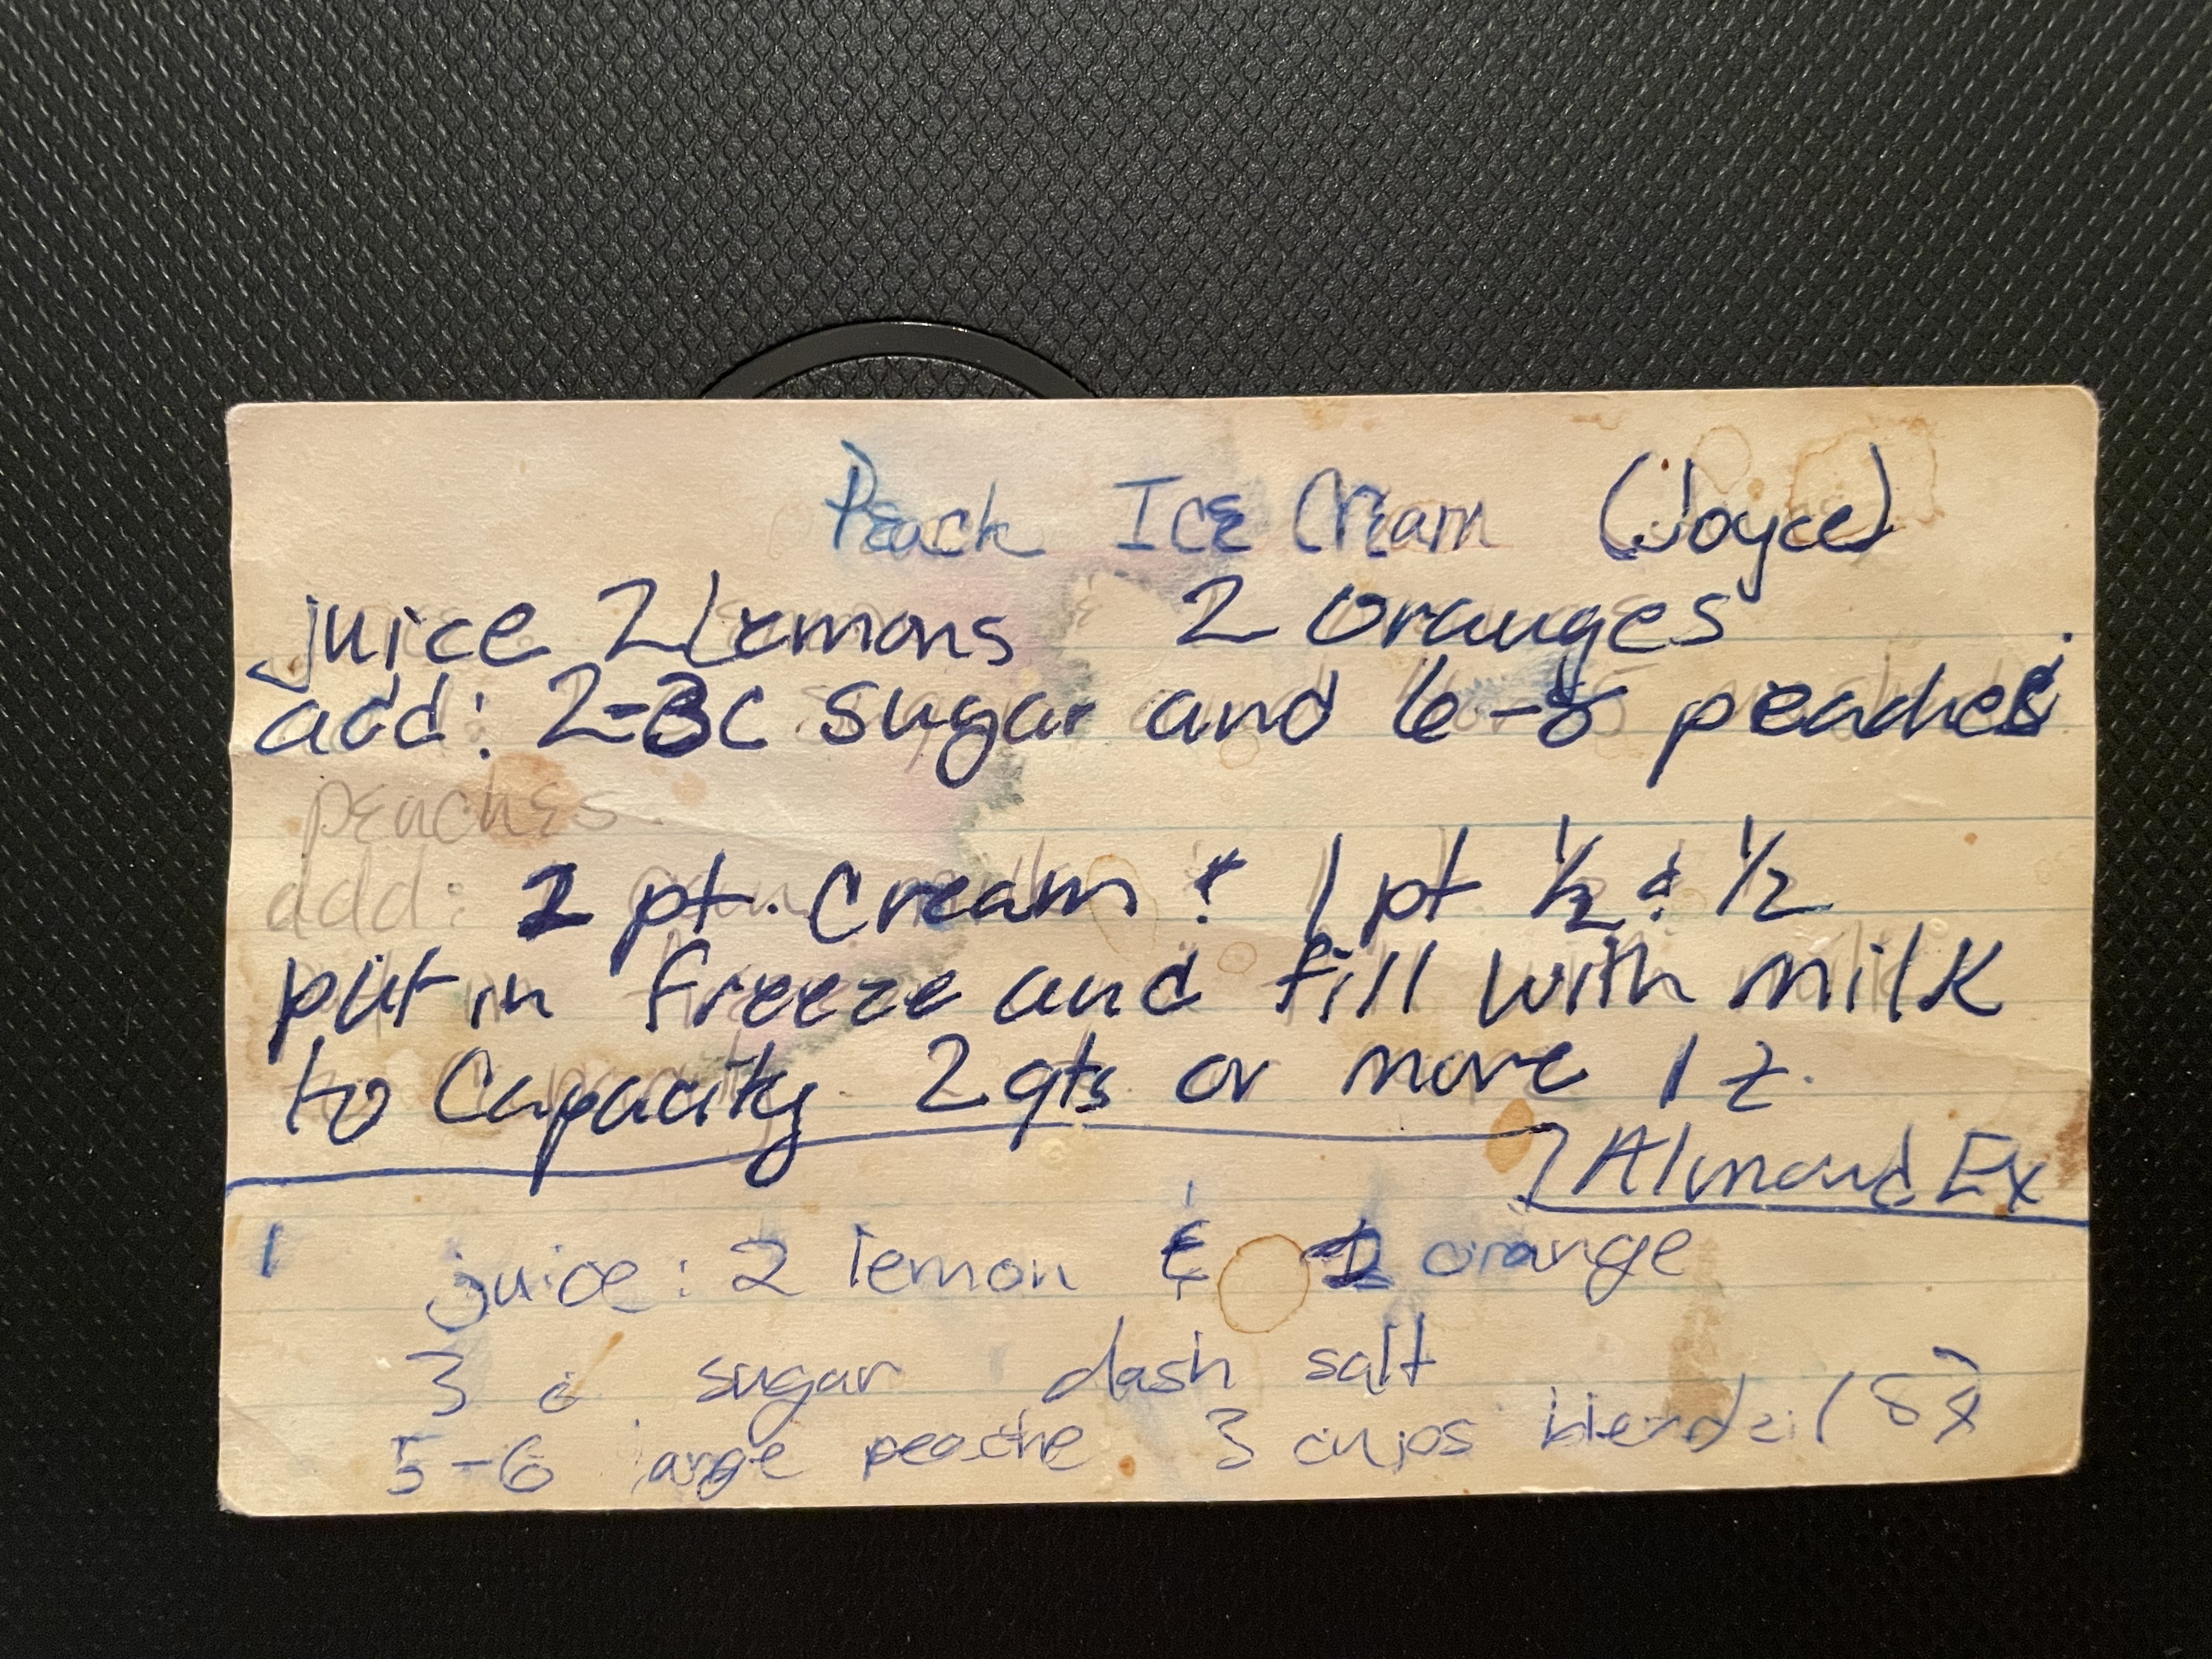 Peach Ice Cream (Joyce)
juice 2 Lemons 2 Oranges
add: 2-3C sugar and 6-8 peaches
peaches.
add: 2 pt. Cream & 1 pt ½ & ½
put in freeze and fill with milk
to Capacity 2 qts or more 1 t.
Almond Ex
1 juice: 2 lemon & 2 orange
3 c. sugar dash salt
5-6 large peache 3 cups blended